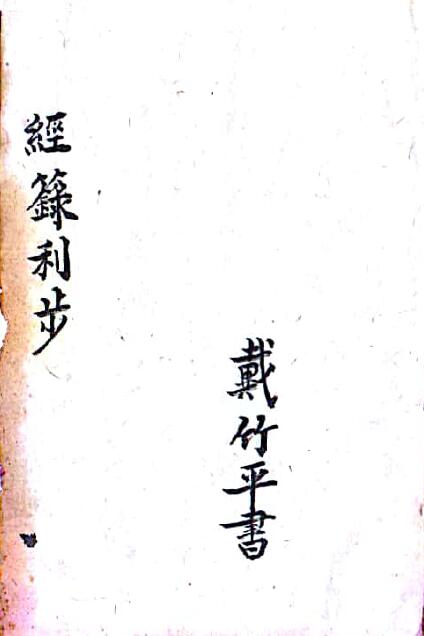 經籙利步
戴竹平書